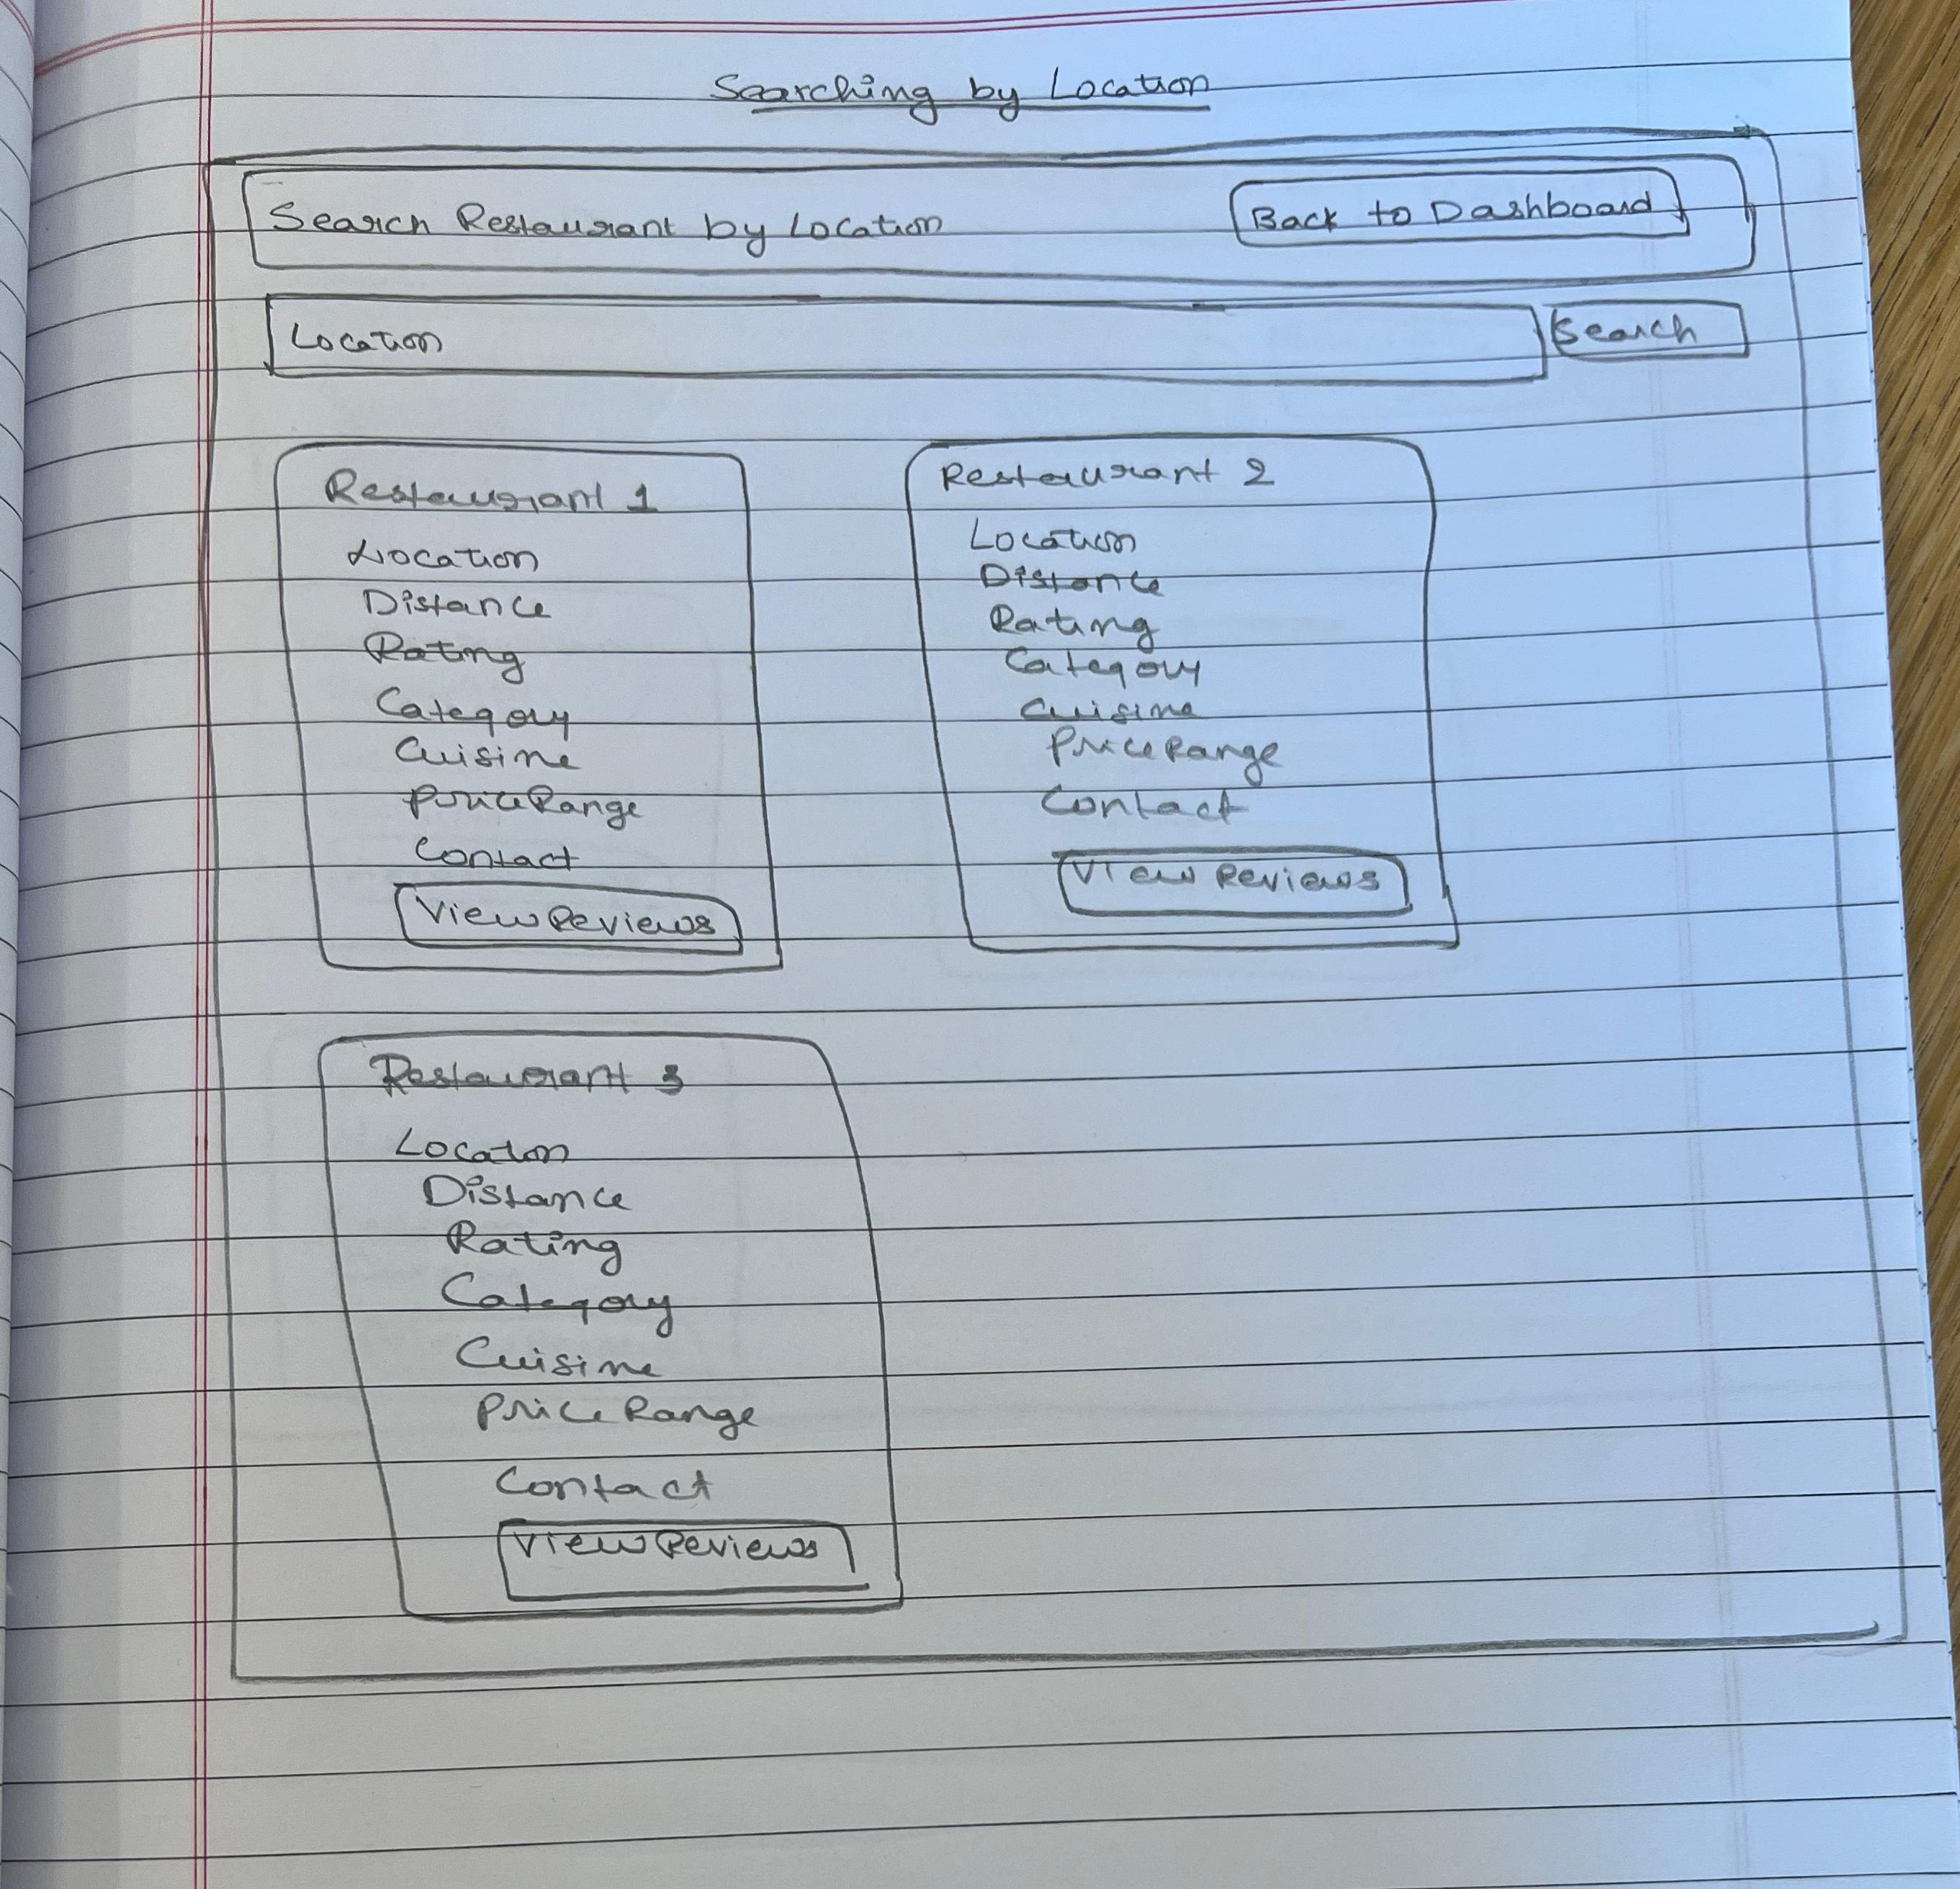 Searching by Location
Search Restaurant by Location
Back to Dashboard
Location
Search
Restaurant 1
Location
Distance
Rating
Category
Cuisine
PriceRange
Contact
View Reviews
Restaurant 2
Location
Distance
Rating
Category
Cuisine
PriceRange
Contact
View Reviews
Restaurant 3
Locaton
Distance
Rating
Category
Cuisine
Price Range
Contact
View Reviews